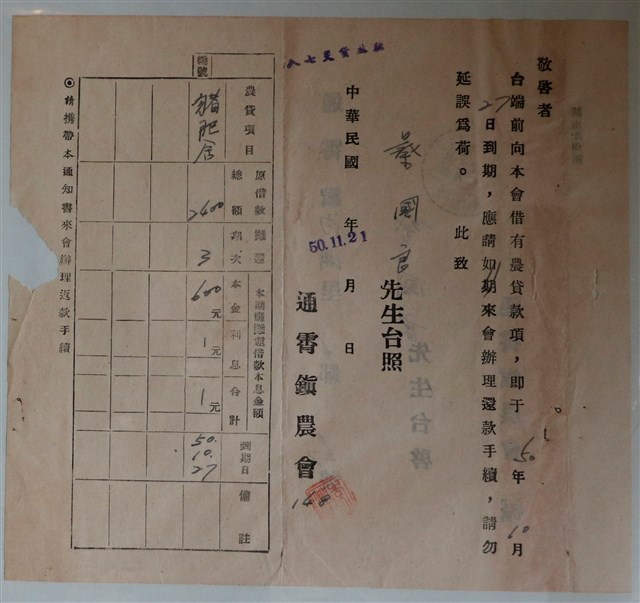 敬啓者
台端前向本會借有農貸款項，即于50年10月
27日到期，應請如期來會辦理還款手續，請勿
延誤爲荷。 此致
葉國良 先生台照
中華民國 年 月 日
50.11.21
通霄鎭農會
編號
農貸項目 豬肥舍
原借款總額 2400
攤還期次 3
本期應攤還借款本息金額
本金 600元
利息 1元
合計 1元
到期日 50.10.27
備註
◎請携帶本通知書來會辦理返款手續